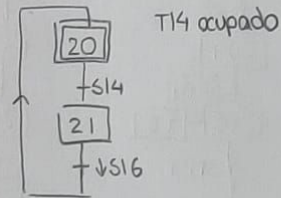 T14 ocupado
20
S14
21
↓S16